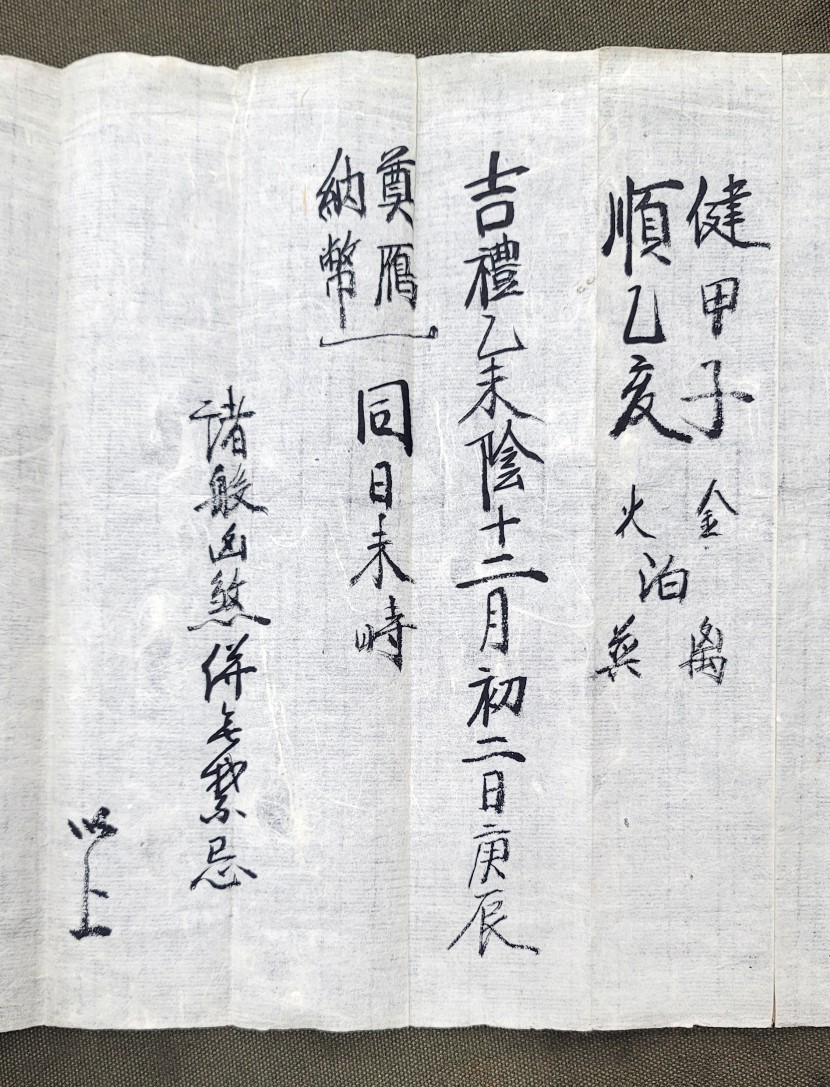 健甲子 金
順乙亥 火 泊 英
吉禮乙未陰十二月初二日庚辰
奠鴈
納幣
同日未時
諸般凶煞併无忌
以上